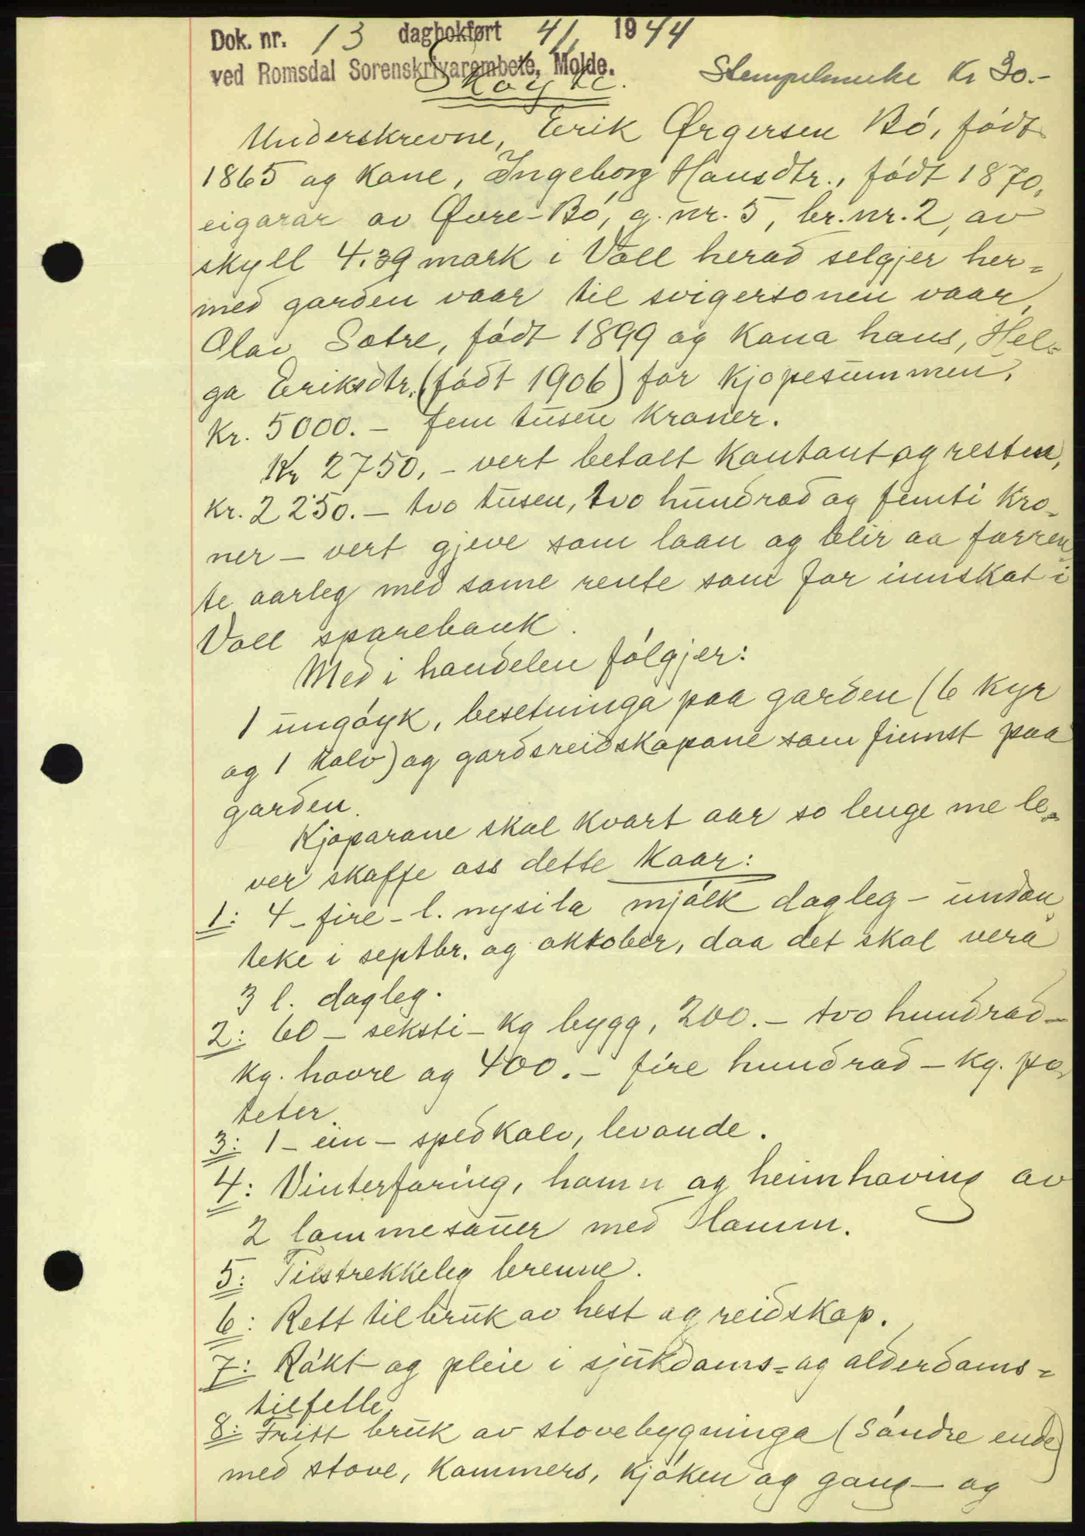 Dok. nr. 13 dagbokført 4/1 1944
ved Romsdal Sorenskrivarembete, Molde.
Skøyte.
Stempelmerke Kr 30.-
Underskrevne, Erik Ørgersen Bó, fódt
1865 og kone, Ingeborg Hansdtr., fódt 1870,
eigarar av Øvre-Bó, g. nr. 5, br. nr. 2, av
skyll 4.39 mark i Voll herad selgjer her=
med garden vaar til svigersonen vaar,
Olav Sotre, fódt 1899 og kona hans, Hel=
ga Eriksdtr. (fódt 1906) for kjopesummen,
kr. 5000.- fem tusen kroner.
Kr 2750.- vert betalt kontant og resten,
kr. 2250.- tvo tusen, tvo hundrad og femti kro-
ner - vert gjeve som laan og blir aa forren=
te aarleg med same rente som for innskot i
Voll sparebank.
Med i handelen fólgjer:
1 ungóyk, besetninga paa garden (6 kyr
og 1 kalv) og gardsreidskapane som finnst paa
garden.
Kjoparane skal kvart aar so lenge me le=
ver skaffe oss dette kaar:
1: 4 - fire - l. nysila mjólk dagleg - undan
teke i septbr. og oktober, daa det skal vera
3 l. dagleg.
2: 60 - seksti - kg bygg, 200.- tvo hundrad -
kg. havre og 400.- fire hundrad - kg. po=
teter.
3: 1 - ein - spedkalv, levande.
4: Vinterforing, hamn og heimhaving av
2 lammesauer med lamm.
5: Tilstrekkeleg brenne.
6: Rett til bruk av hest og reidskap.
7: Rókt og pleie i sjukdoms= og alderdoms=
tilfelle.
8: Fritt bruk av stovebygninga (sóndre ende)
med stove, kammers, kjóken og gang - og